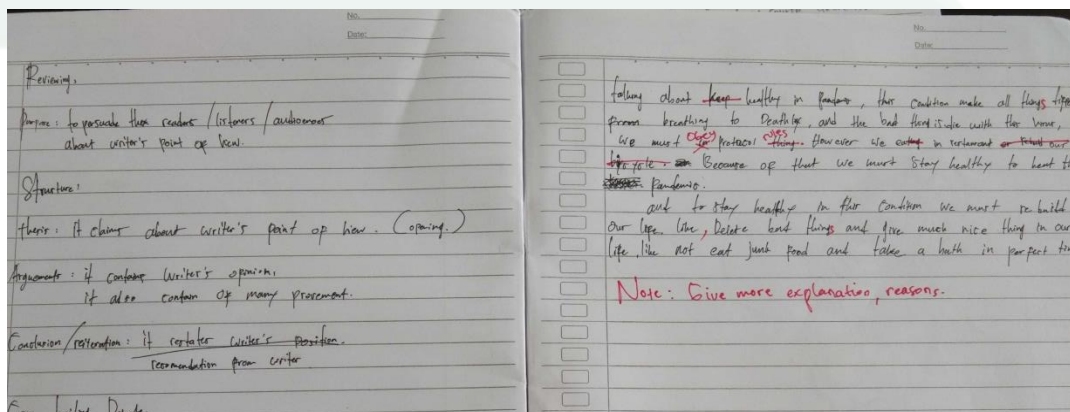 No.
Date:
Reviewing,
Purpose: to persuade the readers / listeners / audiences
about writer's point of view.
Structure:
thesis: It claims about writer's point of view. (opening.)
Arguments: it contains writer's opinion,
it also contain of many provement.
Conclusion/reiteration: it restates writer's position.
recomendation from writer
No.
Date:
talking about keep healthy in Pandemi, this condition make all things
from breathing to Death, and the bad thing is die with this Virus,
We must obey protocol rules. However we in restaurant or
Because of that we must stay healthy to
Pandemic.
and to stay healthy in this condition we must re build
Our life. like, Delete bad things and give much nice thing in our
life, like not eat junk food and take a bath in perfect
Note: Give more explanation, reasons.